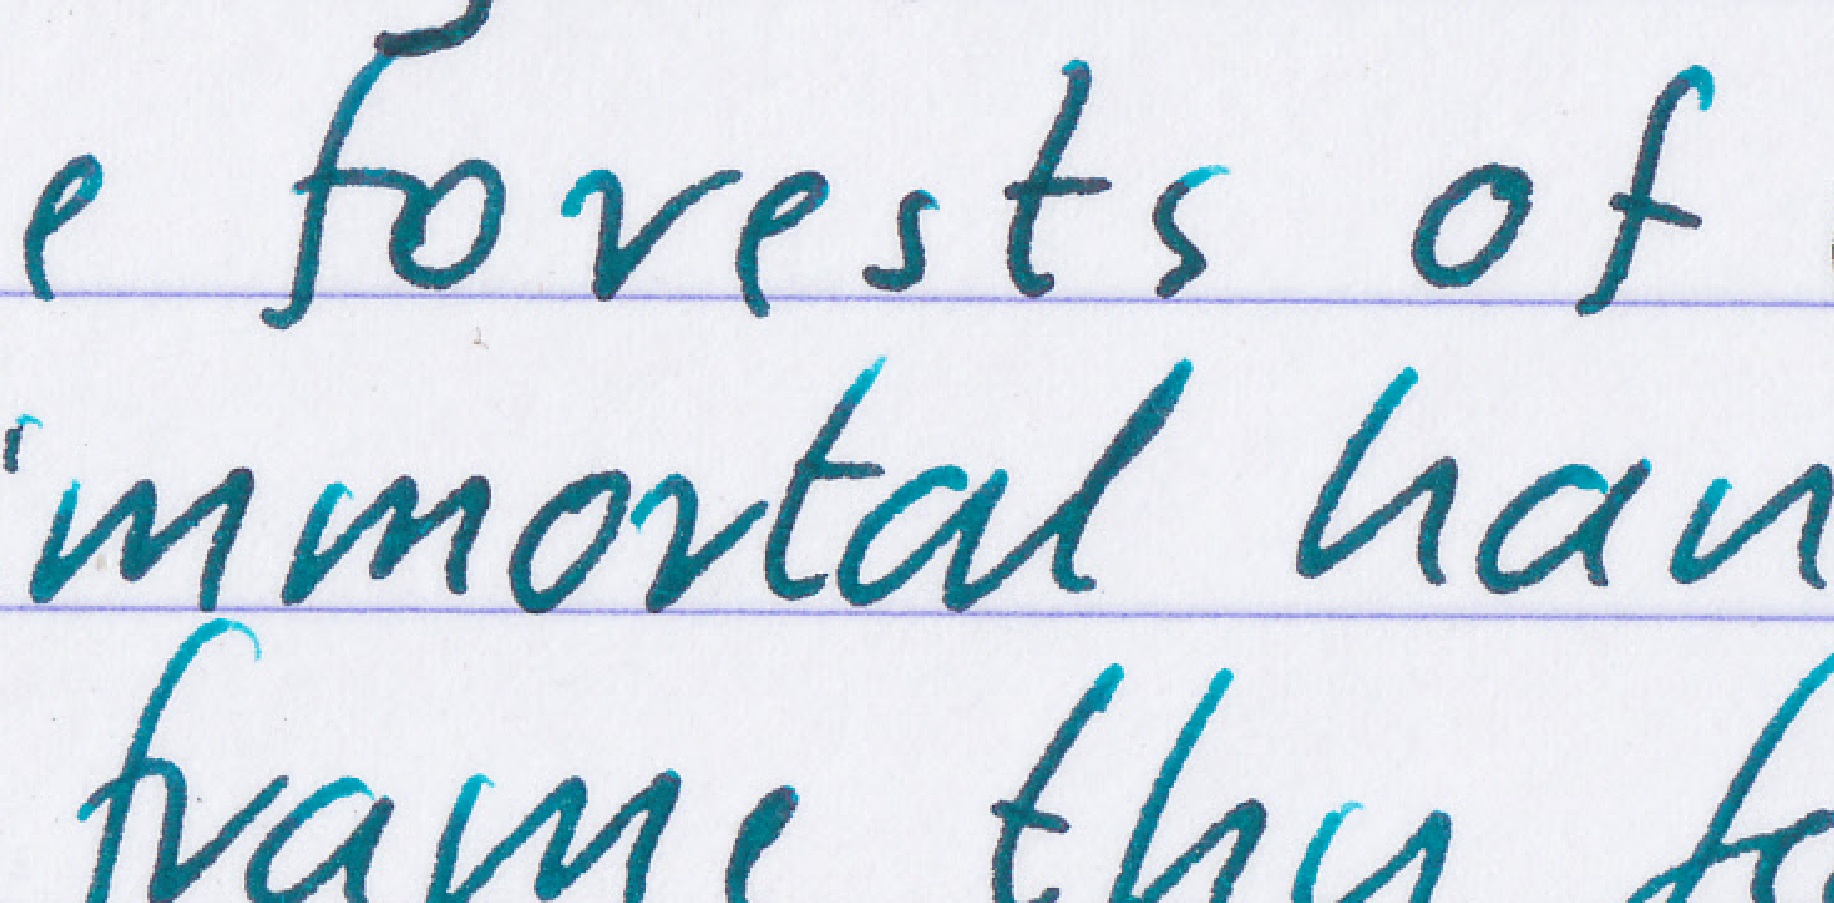 e forests of
immortal han
frame thy fe